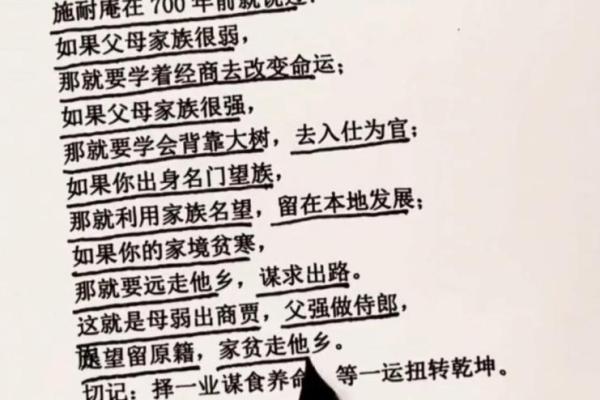 施耐庵在700年前就说过：
如果父母家族很弱，
那就要学着经商去改变命运；
如果父母家族很强，
那就要学会背靠大树，去入仕为官；
如果你出身名门望族，
那就利用家族名望，留在本地发展；
如果你的家境贫寒，
那就要远走他乡，谋求出路。
这就是母弱出商贾，父强做侍郎，
族望留原籍，家贫走他乡。
切记：择一业谋食养命，等一运扭转乾坤。